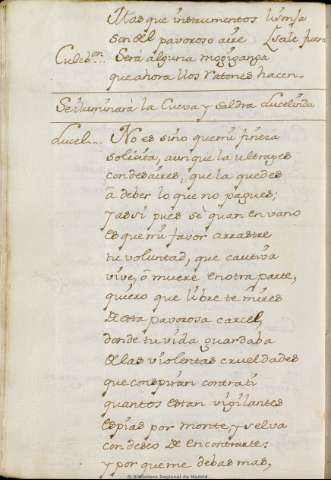 Mas que instrumentos
son del pavoroso aire Sale
Culeb.on... Será alguna mogiganga
que ahora los ratones hacen.
Se iluminará la Cueva y saldra Lucelinda
Lucel... No es sino que mi fineza
solicita, aunque la ultrages
con desaires, que la quedes
â deber lo que no pagues;
y assi pues sè quan en vano
es que mi favor arrastre
tu voluntad, que cautiva
vive, ô muere en otra parte,
quiero que libre te mires
de esta pavorosa carcel,
donde tu vida guardaba
de las violentas crueldades
que conspiran contra ti
quantos estan vigilantes
espias por monte, y selva
con deseo de encontrarte;
y por que me debas mas,
© Biblioteca Regional de Madrid